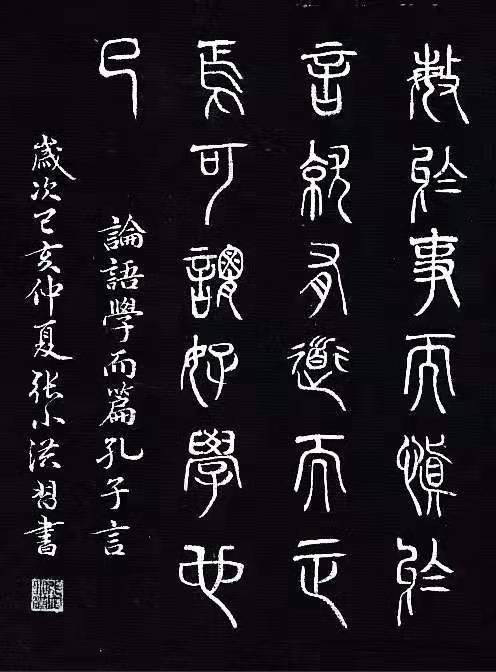 敏於事而慎於
言就有道而正
焉可謂好學也
已
論語學而篇孔子言
歲次己亥仲夏張小洪習書